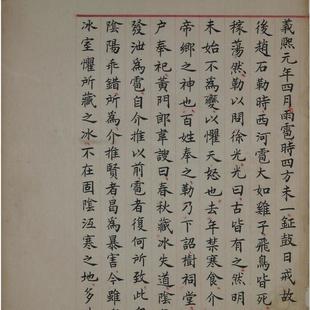 義熙元年四月雨雹時四方未一鉦鼓日戒故
後趙石勒時西河雹大如雞子飛鳥皆死
稼蕩然勒以問徐光光曰古皆有之然明
未始不為變以懼天怒也去年禁寒食介
帝鄉之神也百姓奉之勒乃下詔樹祠堂
户奉祀黃門郎韋謏曰春秋藏冰失道陰
發洩為雹自介推以前雹者復何所致此
陰陽乖錯所為介推賢者曷為暴害今雖
冰室懼所藏之冰不在固陰沍寒之地多